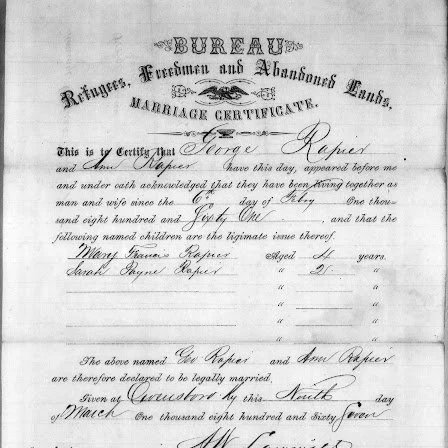 BUREAU
Refugees, Freedmen and Abandoned Lands,
MARRIAGE CERTIFICATE.
This is to Certify that George Rapier
and Ann Rapier have this day, appeared before me
and under oath acknowledged that they have been living together as
man and wife since the 6" day of Feby One thou-
sand eight hundred and Sixty One, and that the
following named children are the ligimate issue thereof.
Mary Francis Rapier Aged 4 years.
Sarah Payne Rapier " 2 "
" "
" "
" "
The above named Geo Rapier and Ann Rapier
are therefore declared to be legally married.
Given at Owensboro Ky this Ninth day
of March One thousand eight hundred and Sixty Seven
A W